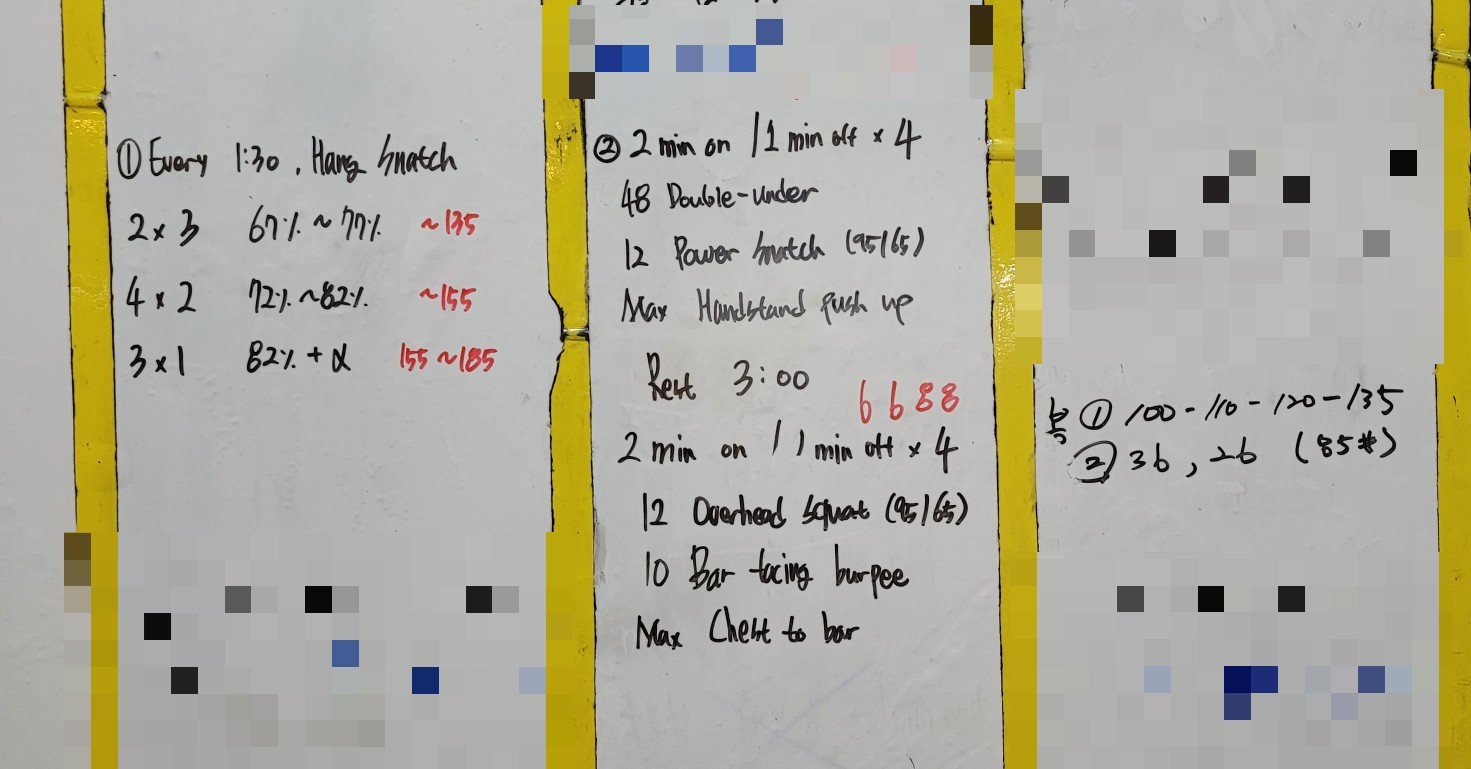 ① Every 1:30 , Hang Snatch
2 × 3 67% ~ 77% ~135
4 × 2 72% ~82% ~155
3 × 1 82% + α 155 ~185
② 2 min on / 1 min off × 4
48 Double-under
12 Power Snatch (95/65)
Max Handstand push up
Rest 3:00
6 6 8 8
2 min on / 1 min off × 4
12 Overhead Squat (95/65)
10 Bar facing burpee
Max Chest to bar
① 100 - 110 - 120 - 135
② 36 , 26 (85#)